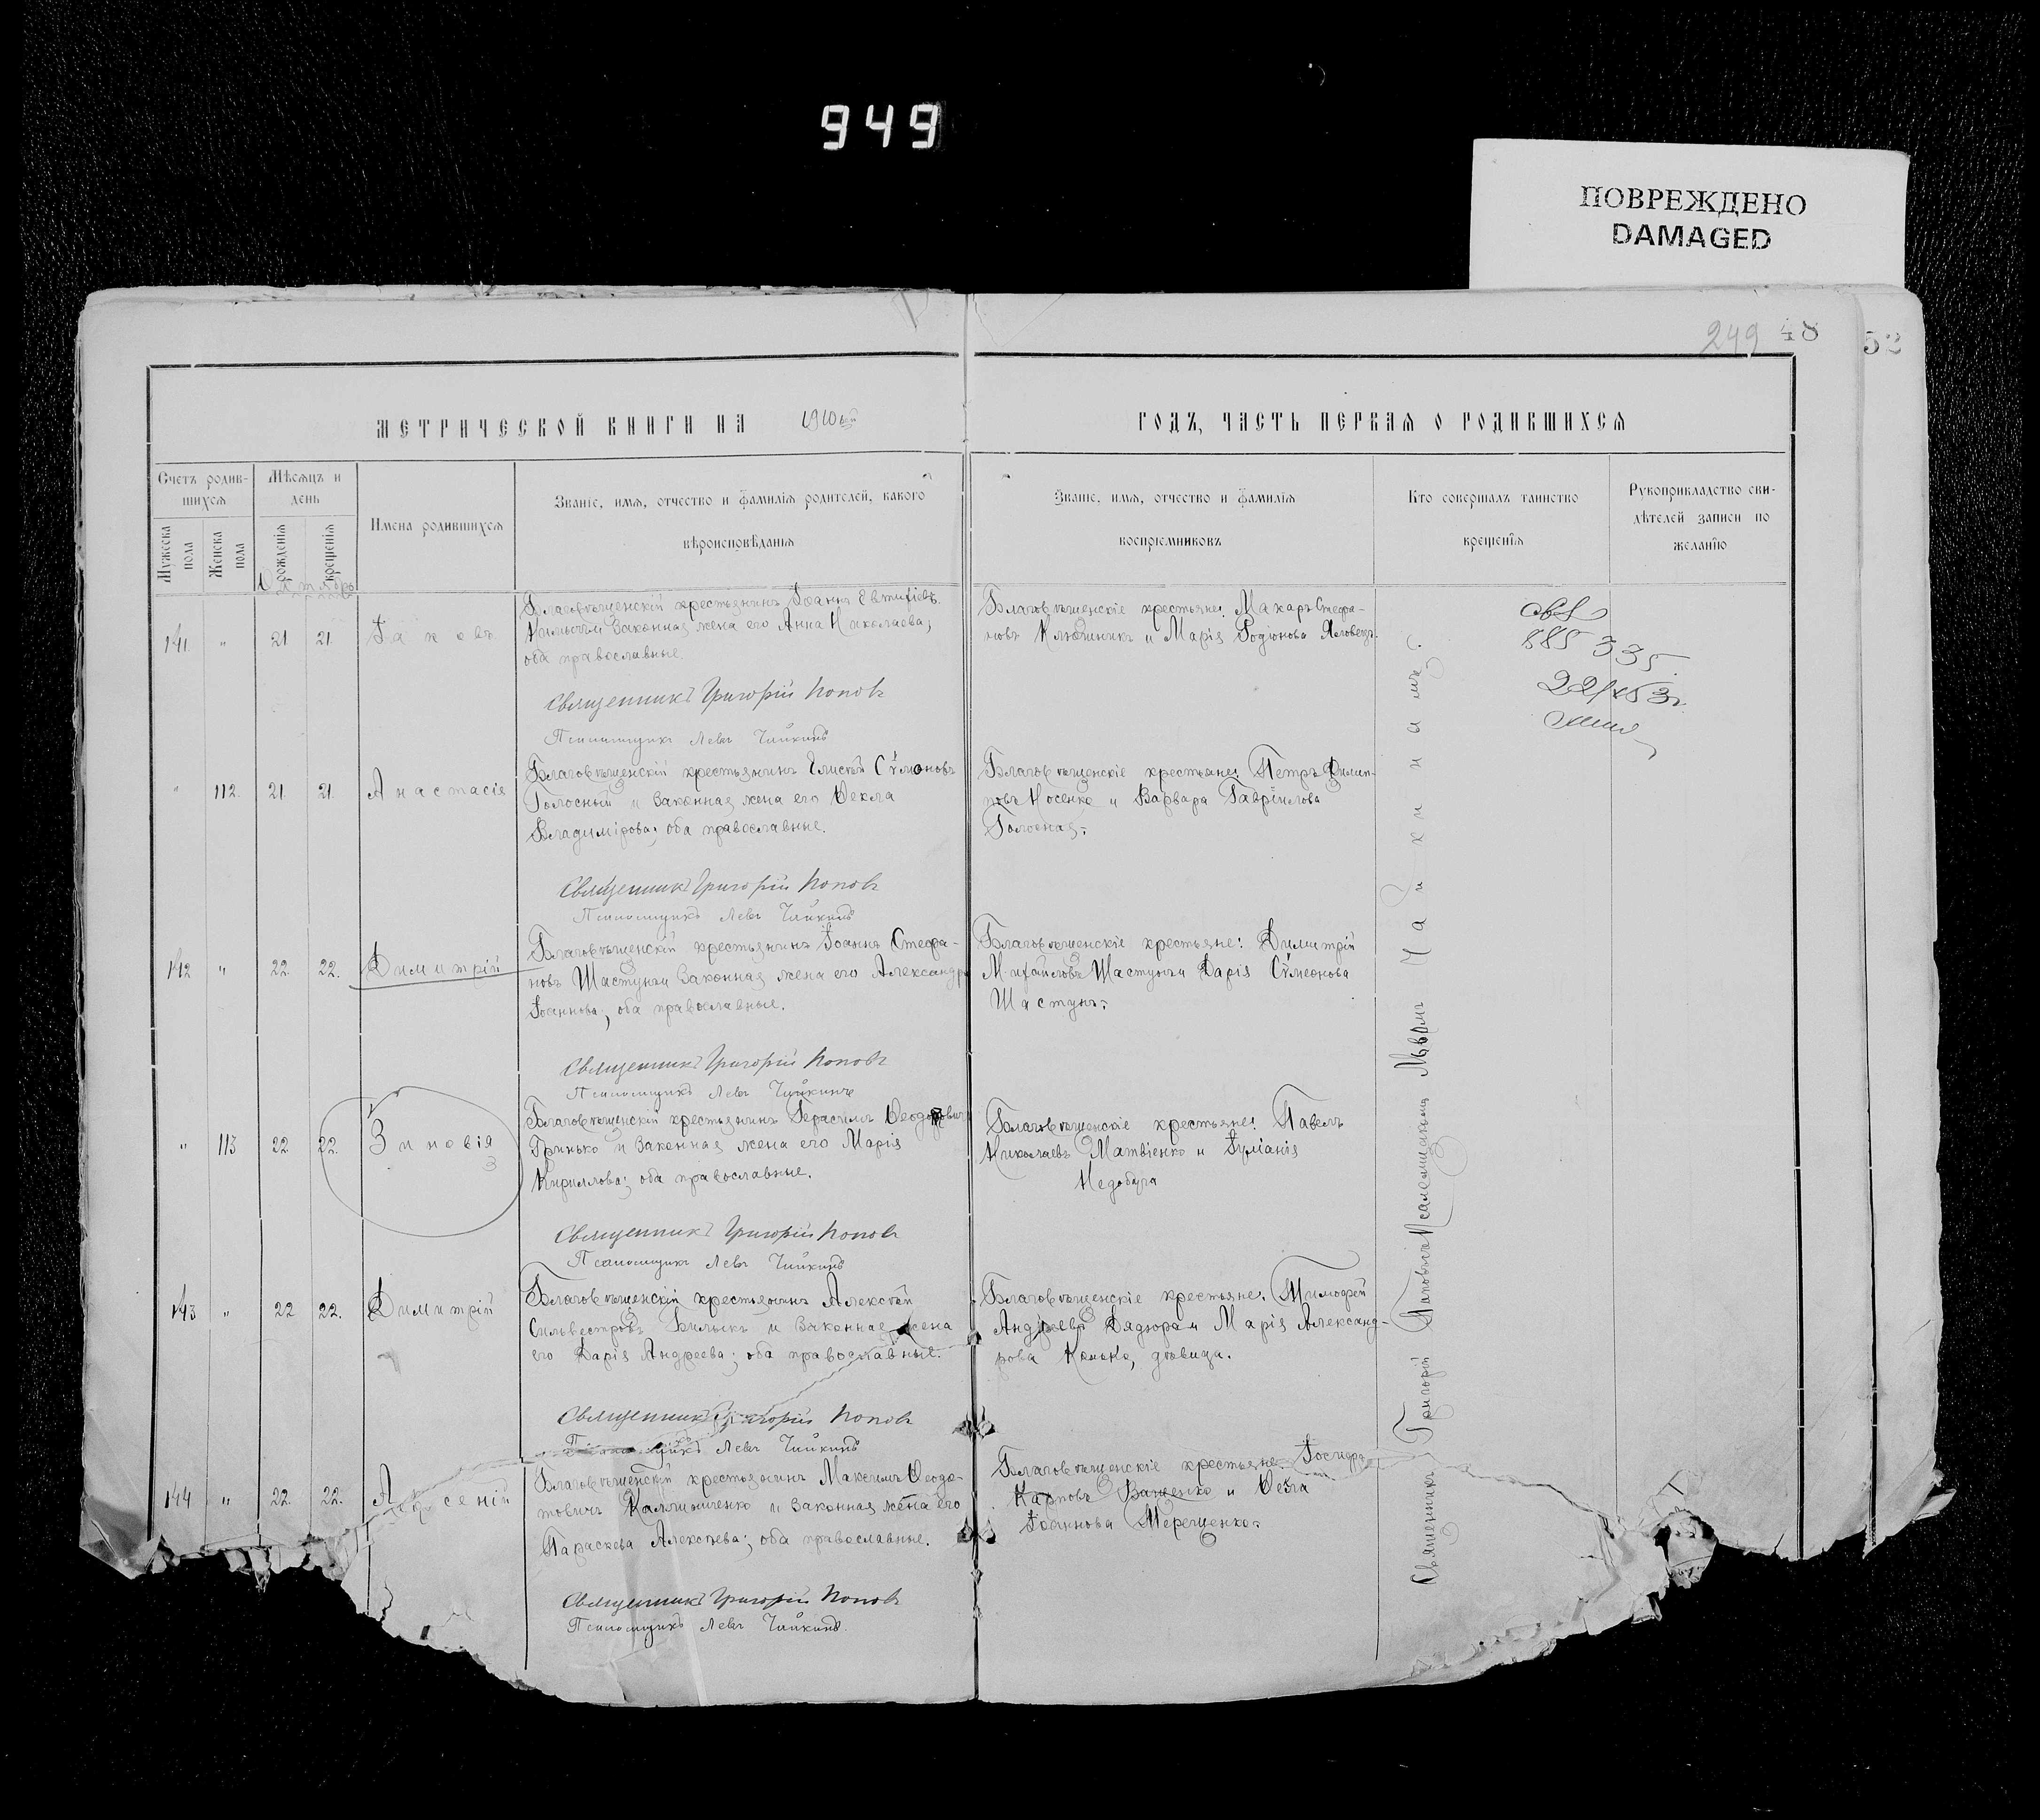 949
ПОВРЕЖДЕНО
DAMAGED
249 48
52
МЕТРИЧЕСКОЙ КНИГИ НА 1910ый
ГОДЪ, ЧАСТЬ ПЕРВАЯ О РОДИВШИХСЯ
Счетъ родив-
шихся
Мужеска
пола
Женска
пола
Мѣсяцъ и
день
рожденія
крещенія
Октябрь
Имена родившихся
Званіе, имя, отчество и фамилія родителей, какого
вѣроисповѣданія
Званіе, имя, отчество и фамилія
воспріемниковъ
Кто совершалъ таинство
крещенія
Рукоприкладство сви-
дѣтелей записи по
желанію
141 " 21 21 Іаковъ
Благовѣщенскій крестьянинъ Іоаннъ Евтихіевъ
и законная жена его Анна Николаева;
оба православные.
Священникъ Григорій Поповъ
Псаломщикъ Левъ Чайкинъ
Благовѣщенскіе крестьяне: Макаръ Стефа-
новъ Ключникъ и Марія Родіонова Яловецъ.
885 335
" 112. 21 21. Анастасія
Благовѣщенскій крестьянинъ Елисѣй Сѵмоновъ
Голосный и законная жена его Ѳекла
Владимірова; оба православные.
Священникъ Григорій Поповъ
Псаломщикъ Левъ Чайкинъ
Благовѣщенскіе крестьяне: Петръ Филип-
повъ Носенко и Варвара Гавріилова
Голосная.
142 " 22. 22. Димитрій
Благовѣщенскій крестьянинъ Іоаннъ Стефа-
новъ Шастунъ и законная жена его Александра
Іоаннова; оба православные.
Священникъ Григорій Поповъ
Псаломщикъ Левъ Чайкинъ
Благовѣщенскіе крестьяне: Димитрій
Михайловъ Шастунъ и Дарія Сѵмеонова
Шастунъ.
" 113 22. 22. Зиновія
3
Благовѣщенскій крестьянинъ Герасимъ
Гринько и законная жена его Марія
Кириллова; оба православные.
Священникъ Григорій Поповъ
Псаломщикъ Левъ Чайкинъ
Благовѣщенскіе крестьяне: Павелъ
Николаевъ Матвіенко и Іуліанія
Недобуга
143 " 22 22. Димитрій
Благовѣщенскій крестьянинъ Алексѣй
Сильвестровъ Билыкъ и законная жена
его Дарія Андреева; оба православные.
Священникъ Григорій Поповъ
Псаломщикъ Левъ Чайкинъ
Благовѣщенскіе крестьяне: Тимофей
Андреевъ Дядюра и Марія Александ-
рова Конько, дѣвица.
144 " 22. 22. Арсеній
Благовѣщенскій крестьянинъ Максимъ Ѳеодо-
товичъ Каллиниченко и законная жена его
Параскева Алексѣева; оба православные.
Священникъ Григорій Поповъ
Псаломщикъ Левъ Чайкинъ.
Благовѣщенскіе крестьяне:
Карповъ Ващенко и Ѳекла
Іоаннова Терещенко.
Священникъ Григорій Поповъ съ Псаломщикомъ Львомъ Чайкинымъ.